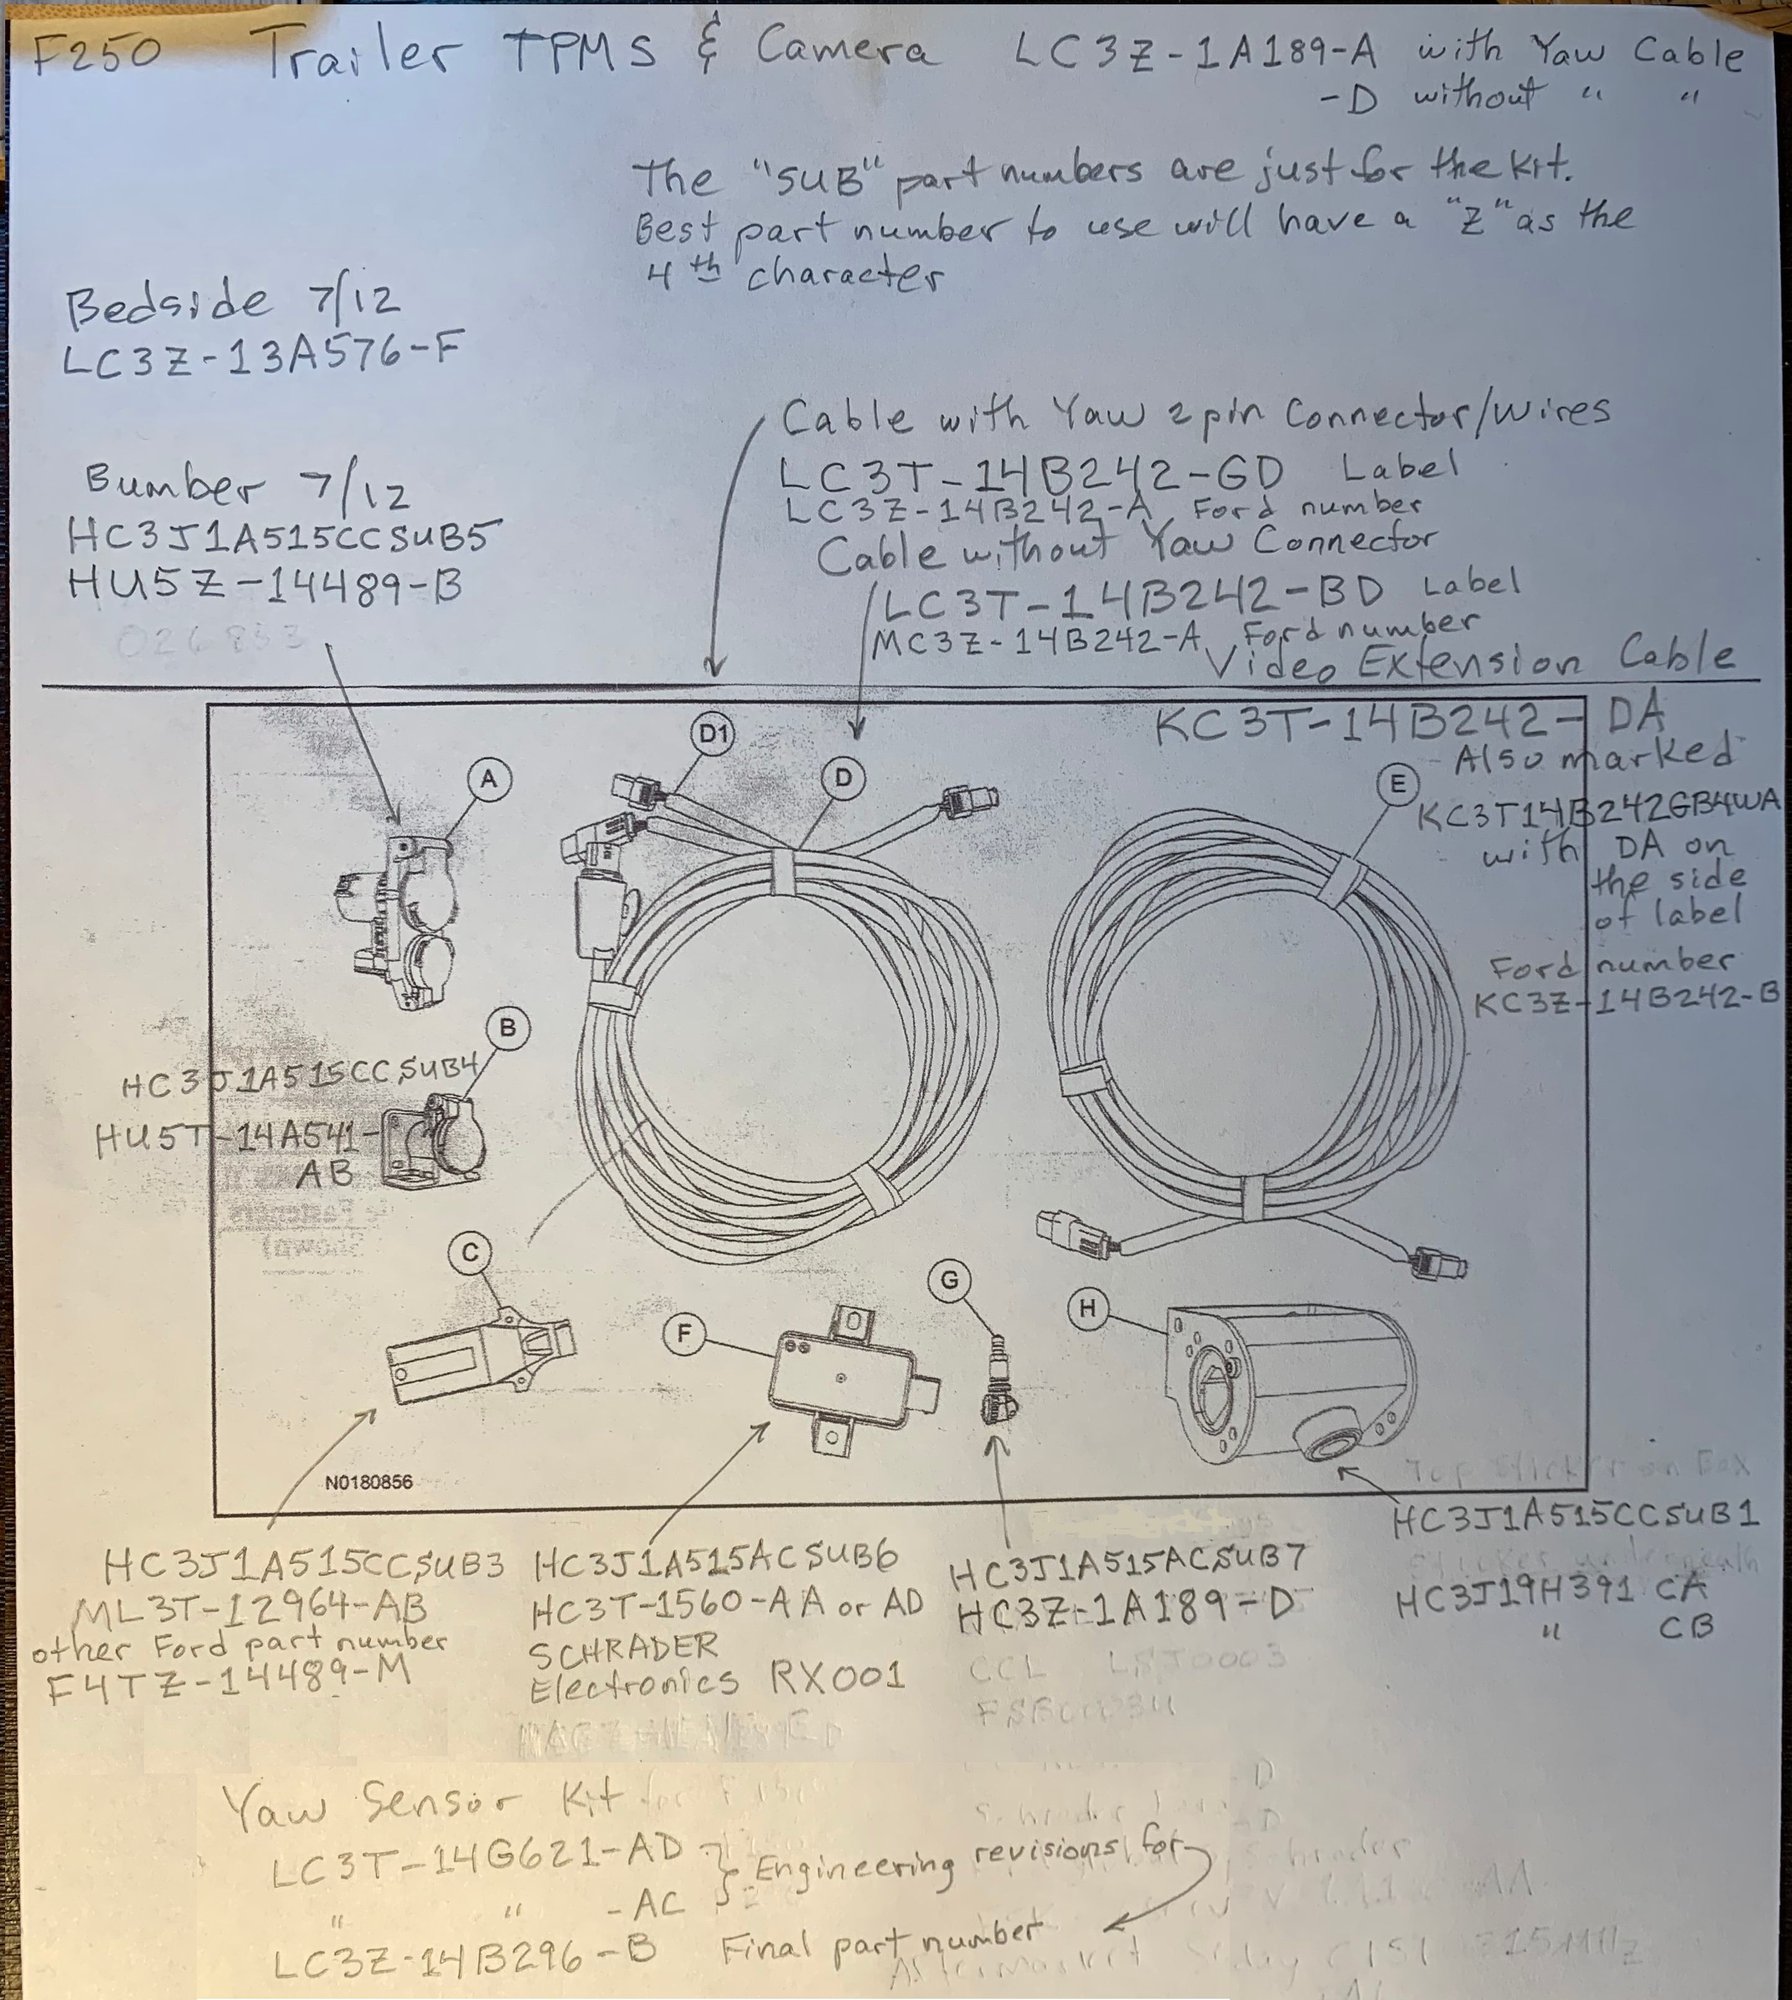 F250 Trailer TPMS & Camera LC3Z-1A189-A with Yaw Cable
-D without " "
The "SUB" part numbers are just for the kit.
Best part number to use will have a "Z" as the
4th character
Bedside 7/12
LC3Z-13A576-F
Cable with Yaw 2 pin Connector/Wires
LC3T-14B242-GD Label
LC3Z-14B242-A Ford number
Bumber 7/12
HC3J1A515CCSUB5
HU5Z-14489-B
026833
Cable without Yaw Connector
LC3T-14B242-BD Label
MC3Z-14B242-A Ford number
Video Extension Cable
KC3T-14B242-DA
Also marked
KC3T14B242GB4WA
with DA on
the side
of label
Ford number
KC3Z-14B242-B
D1
A
D
E
B
HC3J1A515CCSUB4
HU5T-14A541-
AB
C
F
G
H
N0180856
Top Sticker on Box
HC3J1A515CCSUB1
Sticker underneath
HC3J19H391 CA
" CB
HC3J1A515CCSUB3
ML3T-12964-AB
other Ford part number
F4TZ-14489-M
HC3J1A515ACSUB6
HC3T-1560-AA or AD
SCHRADER
Electronics RX001
HC3J1A515ACSUB7
HC3Z-1A189-D
Yaw Sensor Kit
LC3T-14G621-AD } Engineering revisions for
" " -AC
LC3Z-14B296-B Final part number